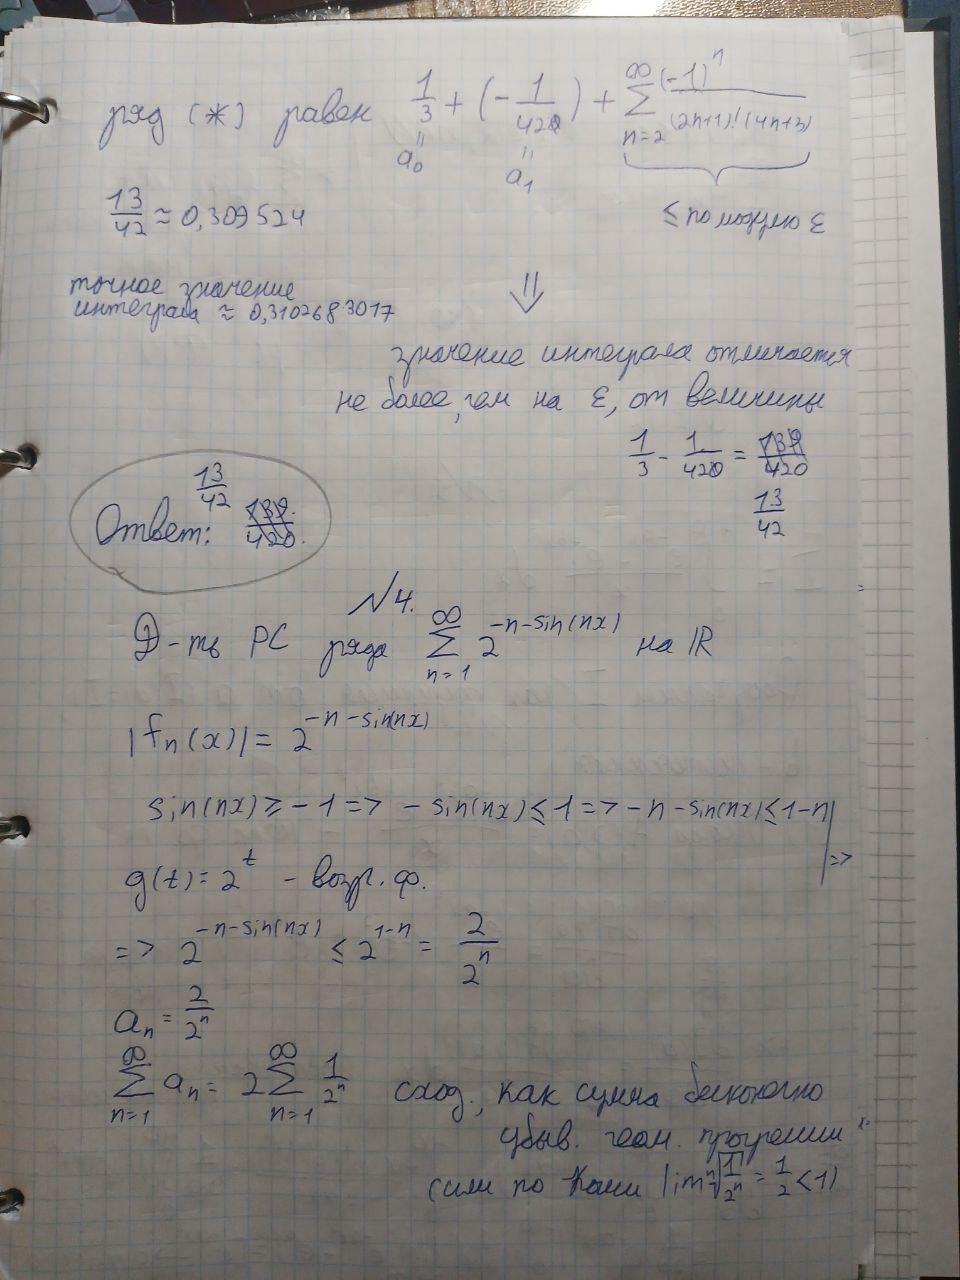 ряд (*) равен 1/3 + (-1/42) + ∑_{n=2}^{∞} (-1)^n / (2n+1)!(4n+3)
a₀ a₁
13/42 ≈ 0,309524
≤ по модулю ε
точное значение
интеграла ≈ 0,3102683017
⇓
значение интеграла отличается
не более, чем на ε, от величины
1/3 - 1/42 =
13/42
Ответ: 13/42
№4.
Д-ть РС ряда ∑_{n=1}^{∞} 2^{-n-sin(nx)} на ℝ
|fₙ(x)| = 2^{-n-sin(nx)}
sin(nx) ≥ -1 => -sin(nx) ≤ 1 => -n-sin(nx) ≤ 1-n
=>
g(t) = 2^t - возр. ф.
=> 2^{-n-sin(nx)} ≤ 2^{1-n} = 2/2^n
aₙ = 2/2^n
∑_{n=1}^{∞} aₙ = 2∑_{n=1}^{∞} 1/2^n сход., как сумма бесконечно
убыв. геом. прогрессии
(или по Коши lim ⁿ√(1/2^n) = 1/2 < 1)